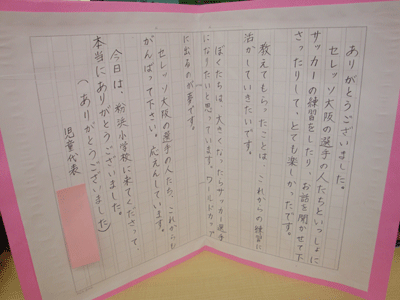 ありがとうございました。
セレッソ大阪の選手の人たちといっしょに
サッカーの練習をしたり、お話を聞かせて下
さったりして、とても楽しかったです。
教えてもらったことは、これからの練習に
活かしていきたいです。
ぼくたちは、大きくなったらサッカー選手
になりたいと思っています。ワールドカップ
に出るのが夢です。
セレッソ大阪の選手の人たち、これからも
がんばって下さい。応えんしています。
今日は、粉浜小学校に来てくださって、
本当にありがとうございました。
(ありがとうございました)
児童代表